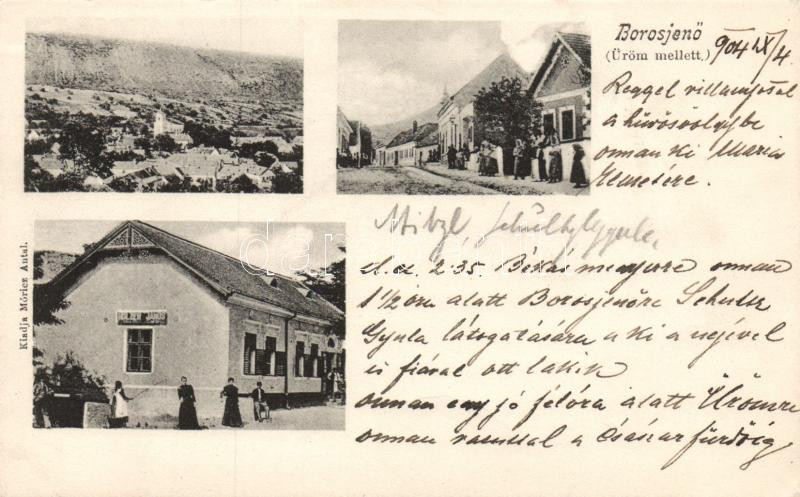 Borosjenő
(Üröm mellett.)
904 IX/4
Reggel villamossal
a hűvösvölgybe
onnan ki Mária
Remetére.
d.u. 2.35. Békásmegyerre onnan
1 1/2 óra alatt Borosjenőre Schuster
Gyula látogatására a ki a nejével
és fiával ott lakik
onnan egy jó félóra alatt Ürömre
onnan vasuttal a Császárfürdőig
Kiadja Móricz Antal.
JÁNOS
darabanth